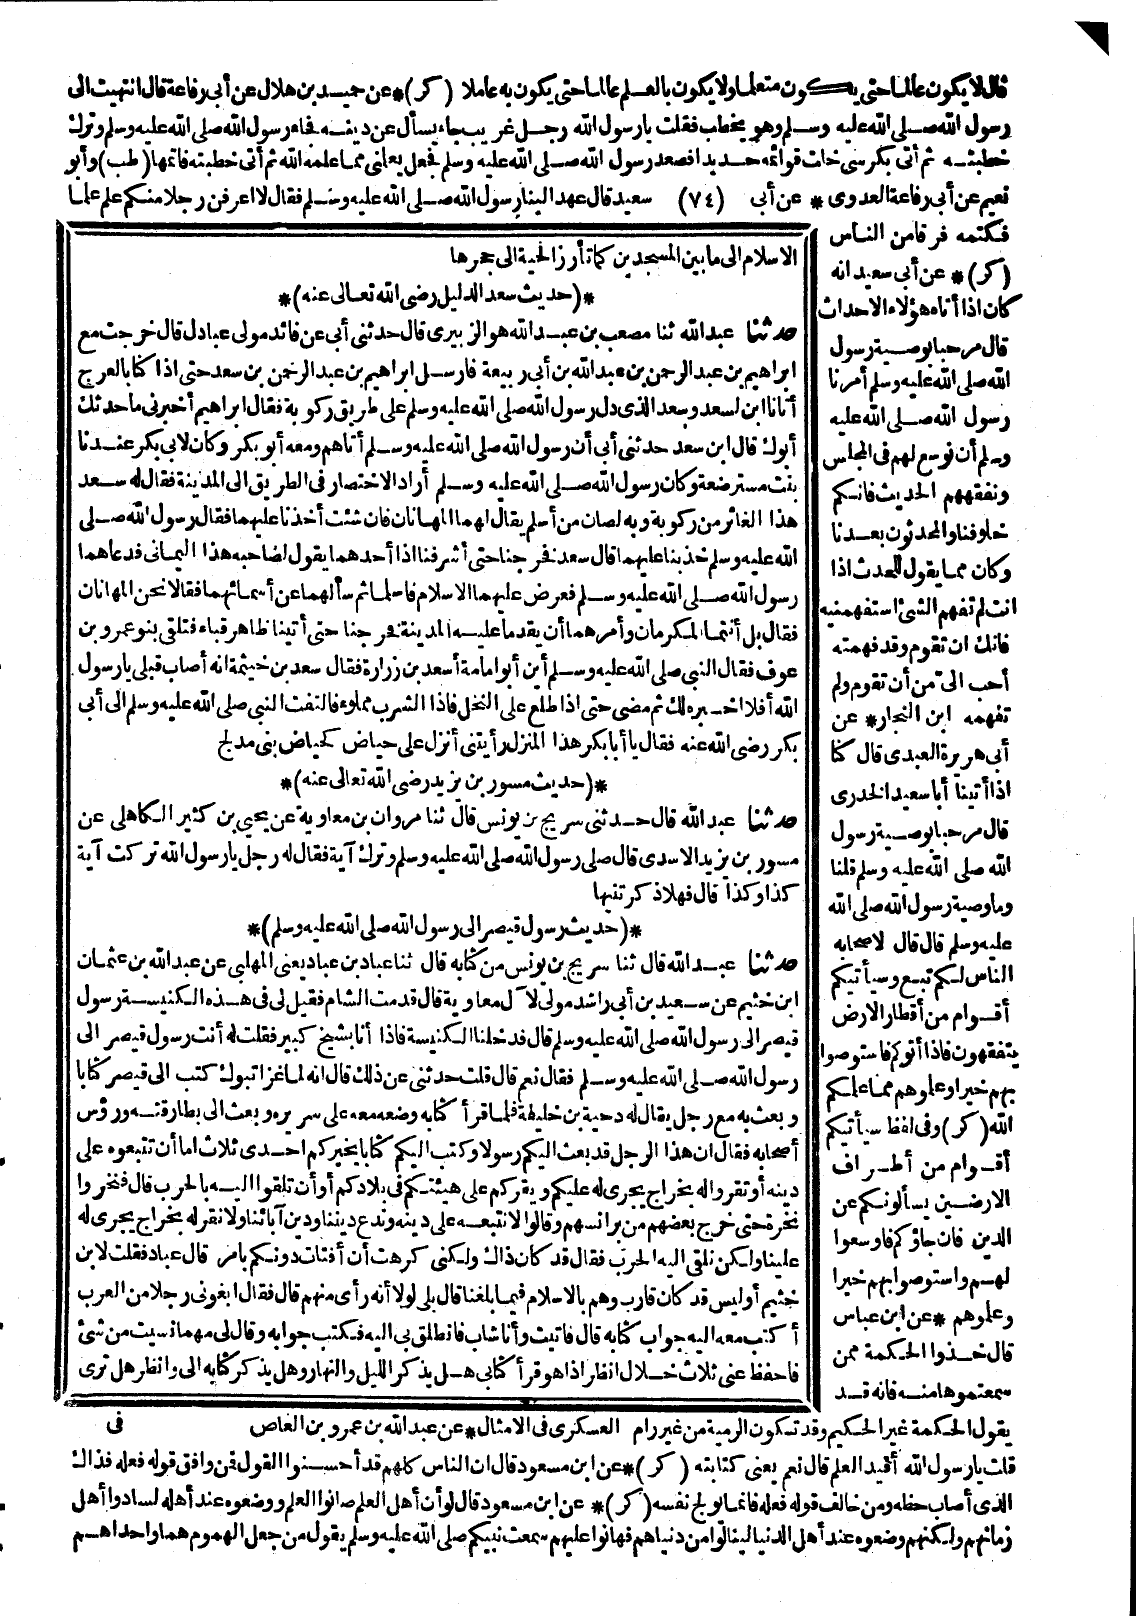 قال لا يكون عالما حتى يكون متعلما ولا يكون بالعلم عالما حتى يكون به عاملا (كر)* عن حميد بن هلال عن أبى رفاعة قال انتهيت الى
رسول الله صلى الله عليه وسلم وهو يخطب فقلت يا رسول الله رجل غريب جاء يسأل عن دينه فجاء رسول الله صلى الله عليه وسلم وترك
خطبته ثم أتى بكرسى خلت قوائمه حديدا فصعد رسول الله صلى الله عليه وسلم فجعل يعلمنى مما علمه الله ثم أتى خطبته فأتمها (طب) وأبو
نعيم عن أبى رفاعة العدوى * عن أبى (٧٤) سعيد قال عهد الينا رسول الله صلى الله عليه وسلم فقال لا اعرفن رجلا منكم علم علما
فكتمه فرقا من الناس
(كر)* عن أبى سعيد انه
كان اذا أتاه هؤلاء الاحداث
قال مرحبا بوصية رسول
الله صلى الله عليه وسلم أمرنا
رسول الله صلى الله عليه
وسلم أن نوسع لهم فى المجلس
ونفقههم الحديث فانكم
خلوفنا والمحدثون بعدنا
وكان مما يقول للحدث اذا
انت لم تفهم الشئ استفهمنيه
فانك ان تقوم وقد فهمته
أحب الىّ من أن تقوم ولم
تفهمه ابن النجار* عن
أبى هريرة العبدى قال كنا
اذا أتينا أبا سعيد الخدرى
قال مرحبا بوصية رسول
الله صلى الله عليه وسلم قلنا
وما وصية رسول الله صلى الله
عليه وسلم قال قال لاصحابه
الناس لكم تبع وسيأتيكم
أقوام من أقطار الارض
يتفقهون فاذا أتوكم فاستوصوا
بهم خيرا وعلموهم مما علمكم
الله (كر) وفى لفظ سيأتيكم
أقوام من أطراف
الارضين يسألونكم عن
الدين فان جاؤكم فاوسعوا
لهم واستوصوا بهم خيرا
وعلموهم * عن ابن عباس
قال خذوا الحكمة ممن
سمعتموها منه فانه قد
يقول الحكمة غير الحكيم وقد تكون الرمية من غير رام العسكرى فى الامثال * عن عبد الله بن عمرو بن العاص
قلت يا رسول الله أقيد العلم قال نعم يعنى كتابته (كر)* عن ابن مسعود قال ان الناس كلهم قد أحسنوا القول فمن وافق قوله فعله فذاك
الذى أصاب حظه ومن خالف قوله فعله فانما يوبخ نفسه (كر)* عن ابن مسعود قال لو أن أهل العلم صانوا العلم ووضعوه عند أهله لسادوا أهل
زمانهم ولكنهم وضعوه عند أهل الدنيا لينالوا من دنياهم فهانوا عليهم سمعت نبيكم صلى الله عليه وسلم يقول من جعل الهموم هما واحدا هم
الاسلام الى ما بين المسجدين كما تأرز الحية الى جحرها
*(حديث سعد الدليل رضى الله تعالى عنه)*
حدثنا عبد الله ثنا مصعب بن عبد الله هو الزبيرى قال حدثنى أبى عن فائد مولى عبادل قال خرجت مع
ابراهيم بن عبد الرحمن بن عبد الله بن أبى ربيعة فارسل ابراهيم بن عبد الرحمن بن سعد حتى اذا كنا بالعرج
أتانا ابن لسعد وسعد الذى دل رسول الله صلى الله عليه وسلم على طريق ركوبة فقال ابراهيم أخبرنى ما حدثك
أبوك قال ابن سعد حدثنى أبى أن رسول الله صلى الله عليه وسلم أتاهم ومعه أبو بكر وكان لابى بكر عندنا
بنت مسترضعة وكان رسول الله صلى الله عليه وسلم أراد الاختصار فى الطريق الى المدينة فقال له سعد
هذا الغائر من ركوبة وبه لصان من أسلم يقال لهما المهانان فان شئت أخذنا عليهما فقال رسول الله صلى
الله عليه وسلم خذ بنا عليهما قال سعد فخرجنا حتى أشرفنا اذا أحدهما يقول لصاحبه هذا اليمانى فدعاهما
رسول الله صلى الله عليه وسلم فعرض عليهما الاسلام فاسلما ثم سألهما عن أسمائهما فقالا نحن المهانان
فقال بل أنتما المكرمان وأمرهما أن يقدما عليه المدينة فخرجنا حتى أتينا ظاهر قباء فتلقى بنو عمرو بن
عوف فقال النبى صلى الله عليه وسلم أين أبو امامة أسعد بن زرارة فقال سعد بن خيثمة انه أصاب قبلى يا رسول
الله أفلا اخبره لك ثم مضى حتى اذا طلع على النخل فاذا الشرب مملوء فالتفت النبى صلى الله عليه وسلم الى أبى
بكر رضى الله عنه فقال يا أبا بكر هذا المنزل رأيتنى أنزل على حياض كحياض بنى مدلج
*(حديث مسور بن يزيد رضى الله تعالى عنه)*
حدثنا عبد الله قال حدثنى سريج بن يونس قال ثنا مروان بن معاوية عن يحيى بن كثير الكاهلى عن
مسور بن يزيد الاسدى قال صلى رسول الله صلى الله عليه وسلم وترك آية فقال له رجل يا رسول الله تركت آية
كذا وكذا قال فهلا ذكرتنيها
*(حديث رسول قيصر الى رسول الله صلى الله عليه وسلم)*
حدثنا عبد الله قال ثنا سريج بن يونس من كتابه قال ثنا عباد بن عباد يعنى المهلبى عن عبد الله بن عثمان
ابن خثيم عن سعيد بن أبى راشد مولى لآل معاوية قال قدمت الشام فقيل لى فى هذه الكنيسة رسول
قيصر الى رسول الله صلى الله عليه وسلم قال فدخلنا الكنيسة فاذا أنا بشيخ كبير فقلت له أنت رسول قيصر الى
رسول الله صلى الله عليه وسلم فقال نعم قال قلت حدثنى عن ذلك قال انه لما غزا تبوك كتب الى قيصر كتابا
وبعث به مع رجل يقال له دحية بن خليفة فلما قرأ كتابه وضعه معه على سريره وبعث الى بطارقته ورؤس
أصحابه فقال ان هذا الرجل قد بعث اليكم رسولا وكتب اليكم كتابا يخيركم احدى ثلاث اما أن تتبعوه على
دينه أو تقروا له بخراج يجرى له عليكم ويقركم على هيئتكم فى بلادكم أو أن تلقوا اليه بالحرب قال فنخروا
نخرة حتى خرج بعضهم من برانسهم وقالوا لا نتبعه على دينه وندع ديننا ودين آبائنا ولا نقر له بخراج يجرى له
علينا ولكن نلقى اليه الحرب فقال قد كان ذاك ولكنى كرهت أن أفتات دونكم بامر قال عباد فقلت لابن
خثيم أوليس قد كان قارب وهم بالاسلام فيما بلغنا قال بلى لولا أنه رأى منهم قال فقال ابغونى رجلا من العرب
أكتب معه اليه جواب كتابه قال فاتيت وأنا شاب فانطلق بى اليه فكتب جوابه وقال لى مهما نسيت من شئ
فاحفظ عنى ثلاث خلال انظر اذا هو قرأ كتابى هل يذكر الليل والنهار وهل يذكر كتابه الى وانظر هل ترى
فى